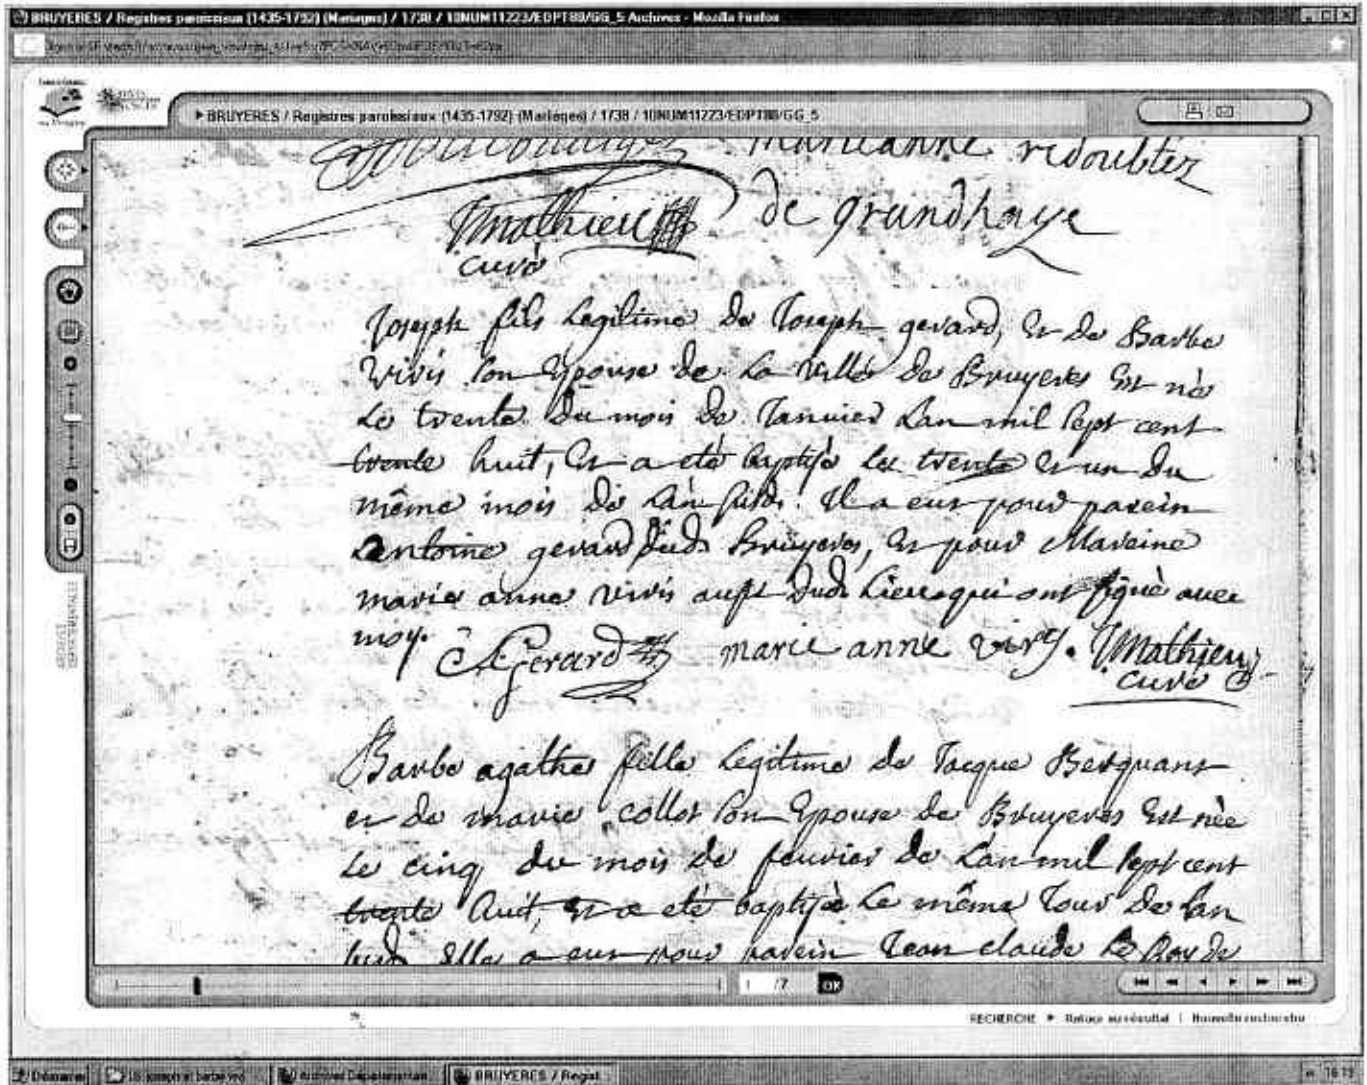 BRUYERES / Registres paroissiaux (1435-1792) (Mariages) / 1738 / 10NUM11223/EDPT88/GG_5 Archives - Mozilla Firefox
BRUYERES / Registres paroissiaux (1435-1792) (Mariages) / 1738 / 10NUM11223/EDPT88/GG_5
marieanne ridoubtez
JMathieu de grandhaye
curé
Joseph fils Legitime de Joseph gerard, et de Barbe
Viris son Epouse de La Ville de Bruyeres Est né
Le trente du mois de Janvier Lan mil sept cent
trente huit, Et a eté baptisé Le trente et un du
même mois de Lan susd. Il a eut pour parein
antoine gerard dud. Bruyeres, et pour Mareine
marie anne viris aussi dud. Lieu qui ont signé avec
moy.
A Gerard marie anne viry. JMathieu
curé
Barbe agathe fille Legitime de Jacque Berquant
et de marie collot son Epouse de Bruyeres Est née
Le cinq du mois de feuvrier de Lan mil sept cent
trente huit, et a eté baptisée Le même Jour de Lan
susd. Elle a eut pour parein Jean claude Le Roy de
/7 OK
RECHERCHE Retour au résultat | Nouvelle recherche
ARCHIVES DEPARTEMENTALES
Démarrer
Archives Départementales
BRUYERES / Regist...
16:19